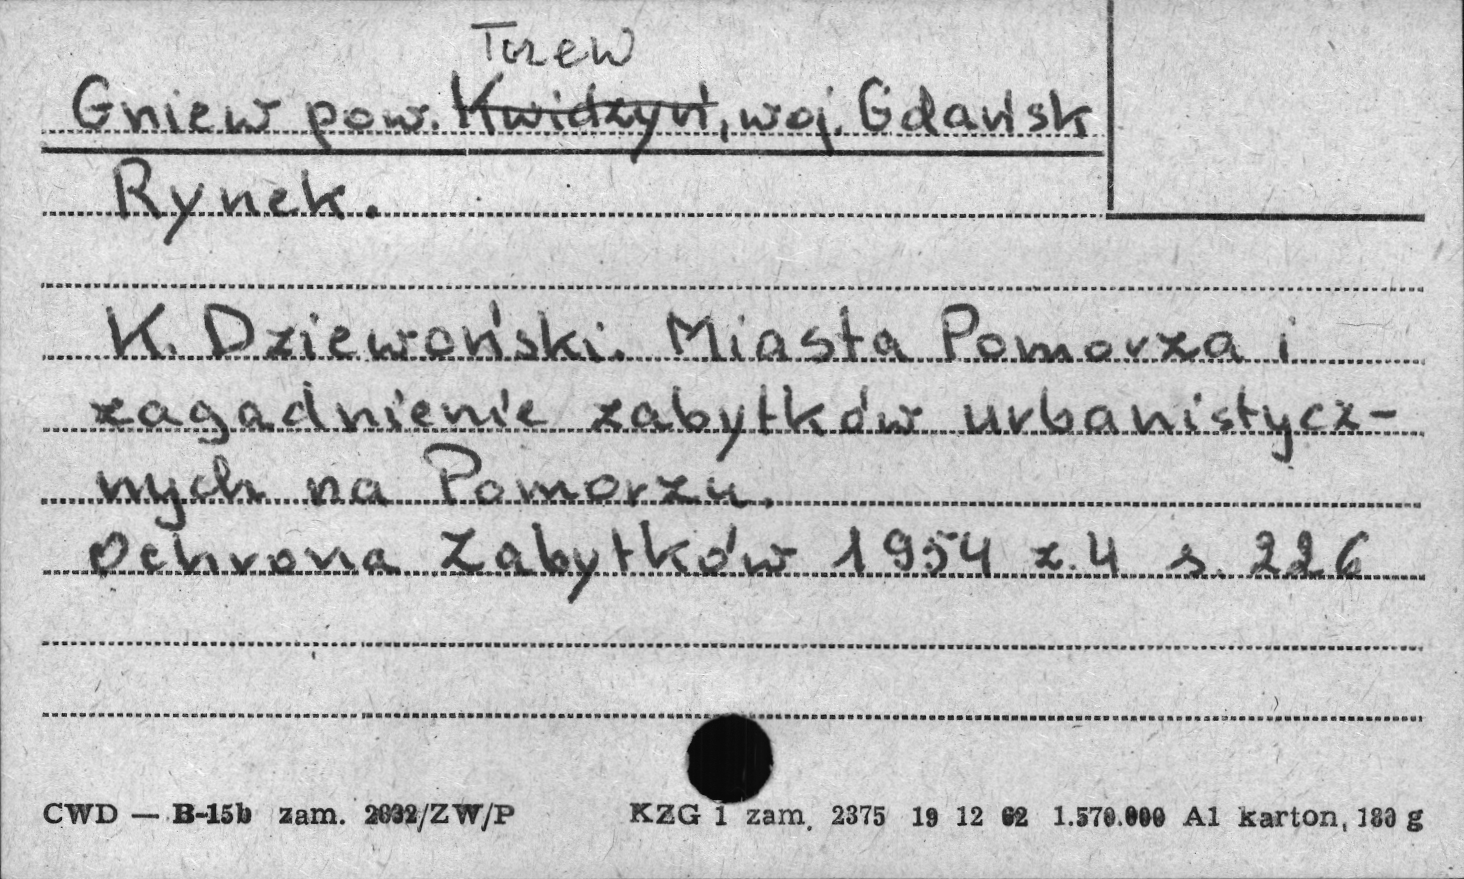 Tczew
Gniew pow. Kwidzyń, woj. Gdańsk
Rynek.
K. Dziewoński. Miasta Pomorza i
zagadnienie zabytków urbanistycz-
nych na Pomorzu.
Ochrona Zabytków 1954 z. 4 s. 226
CWD — B-15b zam. 2032/ZW/P KZG 1 zam. 2375 19 12 62 1.570.000 A1 karton, 180 g